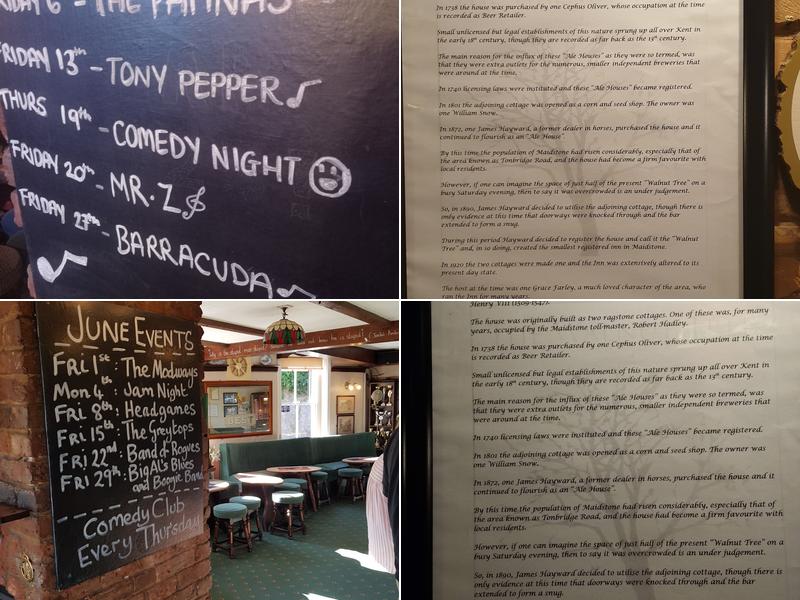 FRIDAY 6th - THE PATINAS
FRIDAY 13th - TONY PEPPER
THURS 19th - COMEDY NIGHT
FRIDAY 20th - MR. Z
FRIDAY 27th - BARRACUDA
In 1738 the house was purchased by one Cephus Oliver, whose occupation at the time
is recorded as Beer Retailer.
Small unlicensed but legal establishments of this nature sprung up all over Kent in
the early 18th century, though they are recorded as far back as the 13th century.
The main reason for the influx of these "Ale Houses" as they were so termed, was
that they were extra outlets for the numerous, smaller independent breweries that
were around at the time.
In 1740 licensing laws were instituted and these "Ale Houses" became registered.
In 1801 the adjoining cottage was opened as a corn and seed shop. The owner was
one William Snow.
In 1872, one James Hayward, a former dealer in horses, purchased the house and it
continued to flourish as an "Ale House".
By this time the population of Maidstone had risen considerably, especially that of
the area known as Tonbridge Road, and the house had become a firm favourite with
local residents.
However, if one can imagine the space of just half of the present "Walnut Tree" on a
busy Saturday evening, then to say it was overcrowded is an under judgement.
So, in 1890, James Hayward decided to utilise the adjoining cottage, though there is
only evidence at this time that doorways were knocked through and the bar
extended to form a snug.
During this period Hayward decided to register the house and call it the "Walnut
Tree" and, in so doing, created the smallest registered inn in Maidstone.
In 1920 the two cottages were made one and the Inn was extensively altered to its
present day state.
The host at the time was one Grace Farley, a much loved character of the area, who
ran the Inn for many years.
JUNE EVENTS
FRI 1st: The Modways
Mon 4th: Jam Night
FRI 8th: Headgames
FRI 15th: The Greytops
FRI 22nd: Band of Rogues
FRI 29th: Big Al's Blues
and Boogie Band
Comedy Club
Every Thursday
BEST
Henry VIII (1509-1547).
The house was originally built as two ragstone cottages. One of these was, for many
years, occupied by the Maidstone toll-master, Robert Hadley.
In 1738 the house was purchased by one Cephus Oliver, whose occupation at the time
is recorded as Beer Retailer.
Small unlicensed but legal establishments of this nature sprung up all over Kent in
the early 18th century, though they are recorded as far back as the 13th century.
The main reason for the influx of these "Ale Houses" as they were so termed, was
that they were extra outlets for the numerous, smaller independent breweries that
were around at the time.
In 1740 licensing laws were instituted and these "Ale Houses" became registered.
In 1801 the adjoining cottage was opened as a corn and seed shop. The owner was
one William Snow.
In 1872, one James Hayward, a former dealer in horses, purchased the house and it
continued to flourish as an "Ale House".
By this time the population of Maidstone had risen considerably, especially that of
the area known as Tonbridge Road, and the house had become a firm favourite with
local residents.
However, if one can imagine the space of just half of the present "Walnut Tree" on a
busy Saturday evening, then to say it was overcrowded is an under judgement.
So, in 1890, James Hayward decided to utilise the adjoining cottage, though there is
only evidence at this time that doorways were knocked through and the bar
extended to form a snug.